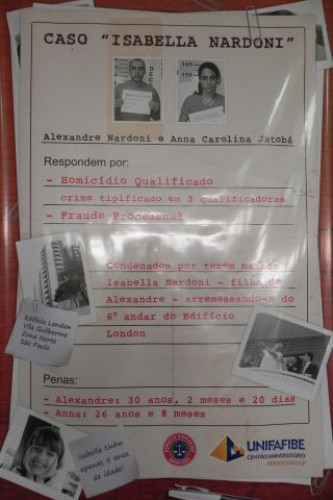 CASO "ISABELLA NARDONI"
Alexandre Nardoni e Anna Carolina Jatobá
Respondem por:
- Homicídio Qualificado
crime tipificado em 3 qualificadoras
- Fraude Processual
Condenados por terem matado
Isabella Nardoni - filha de
Alexandre - arremessando-a do
6º andar do Edifício
London
Edifício London
Vila Guilherme
Zona Norte
São Paulo
Penas:
- Alexandre: 30 anos, 2 meses e 20 dias
- Anna: 26 anos e 8 meses
Isabella tinha
apenas 5 anos
de idade!
UNIFAFIBE
CENTRO UNIVERSITÁRIO